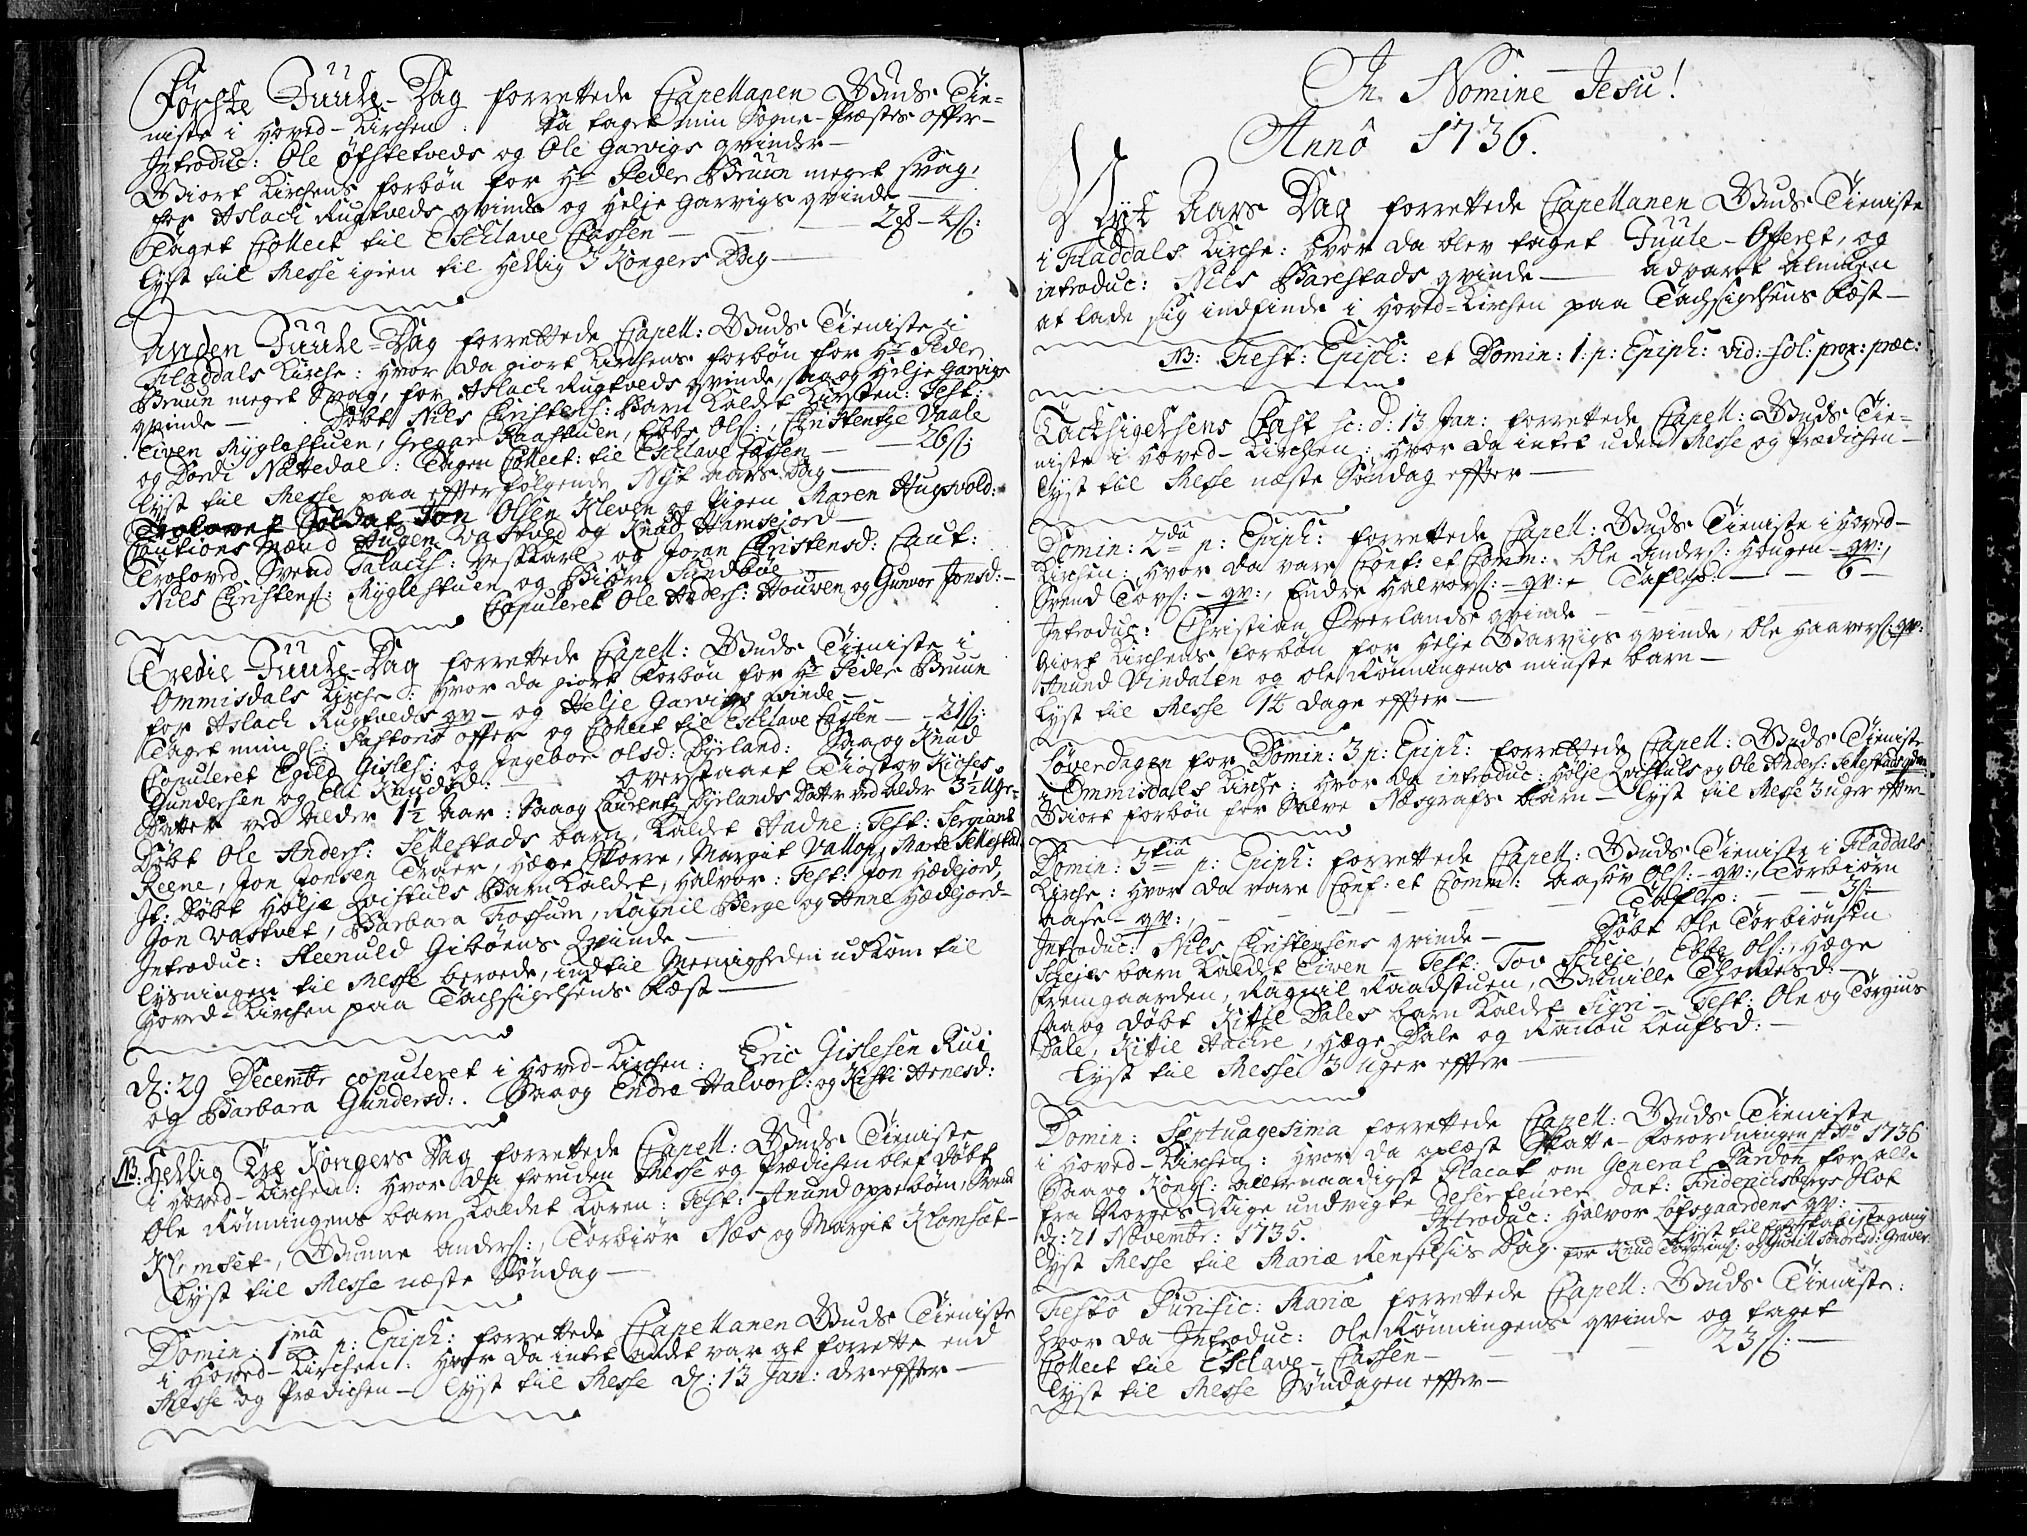 Første Juule-Dag forrettede Capellanen Guds Tie-
niste i Hoved-Kirchen: Da taget min Sogne-Præstes offer-
Introduc: Ole Øfstetveds og Ole Garvigs qvinder-
Giort Kirchens forbøn for Hr Peder Bruun meget svag,
for Aslach Rugtveds qvinde og Helje Garvigs qvinde
Taget Collect til Esclave Cassen - - 2
Lyst til Messe igien til Hellig 3 Kongers Dag-
Anden Juule-Dag forrettede Capell: Guds Tieniste i
Fladdals Kirche: hvor da giort Kirchens forbøn for Hr Peder
Bruun meget Svag, for Aslach Rugtveds qvinde, saa og Helje Garvigs
qvinde - Døbt Nils Christens: Barn kaldet Kirsten: Test:
Eiven Mÿglestuen, Gregar Raastuen, Ebbe Ols:, Christentze Vaale
og Dordi Nættedal: Tagen Collect: til Esclave Cassen - 26 s:
Lyst til Messe paa efterfølgende Nyt aars Dag-
Trolovet Soldat Jon Olsen Kleven og Pigen Maren Hugsvold:
Cautions Mænd Haagen Vastved og Knud Hamsejord-
Troloved Svend Talachs: Veskarl og Joran Christensd: Caut:
Nils Christens: Mÿglestuen og Biørn Sundbøe-
Copuleret Ole Anders: Houven og Gunvor Jonsd:-
Tredie Juule-Dag forrettede Capell: Guds Tieniste i
Ommisdals Kirche: hvor da giort Forbøn for Hr Peder Bruun
for Aslach Rugtveds qv- og Helje Garvigs qvinde-
Taget min Pastoris offer og Collect til Esclave Cassen - 21 s:
Copuleret Egild Gisles: og Ingebor Olsd: Dÿrland: Saa og Knud
Gundersen og Elli Knudsd: - Overstaaet Tiostov Kioses
Datter ved alder 1½ aar: Saa og Laurentz Dÿrlands Datter ved alder 3½ Uge-
Døbt Ole Anders: Sellestads barn, kaldet Aadne: Test: Sergiant
Reene, Jon Jonsen Traaer, Hæge Skorre, Margit Valtop, Marte Sellestad
It: Døbt Holje Qvistuls Barn kaldet, Halvor: Test: Jon Hædejord,
Jon Vastvet, Barbara Fossum, Ragnil Berge og Anne Hædejord-
Introduc: Steenuld Gibøens Qvinde-
Lysningen til Messe beroede, indtil Meenigheden udkom til
Hoved-Kirchen paa Tachsigelsens Fæst-
D: 29 Decembr copuleret i Hoved-Kirchen: Eric Gislesen Rui
og Barbara Gundersd:. Saa og Endre Halvors: og Kisti Arnesd:
NB: Hellig Tre Kongers Dag forrettede Capell: Guds Tieniste
i Hoved-Kirchen: hvor da foruden Messe og Prædichen blef døbt
Ole Rønningens barn kaldet Karen: Test: Anund Oppebøen, Svend
Klomset, Gunne Anders:, Torbiør Næs og Margit Klomset-
Lyst til Messe næste Søndag-
Domin: 1ma p: Epiph: forrettede Capellanen Guds Tieniste
i Hoved-Kirchen: hvor da intet andet var at forrette end
Messe og Prædichen- Lyst til Messe D: 13 Jan: derefter-
In Nomine Jesu!
Annô 1736.
Nyt Aars Dag forrettede Capellanen Guds Tieniste
i Fladdals Kirche: hvor da blev taget Juule-Offeret, og
introduc: Nils Barestads qvinde- advaret almuen
at lade sig indfinde i Hoved-Kirchen paa Tachsigelsens Fæst-
NB: Fest: Epiph: et Domin: 1: p: Epiph: vid: fol: prox: præc:
Tacksigelsens Fæst sc: d: 13 Jan: forrettede Capell: Guds Tie-
niste i Hoved-Kirchen: hvor da intet uden Messe og Prædichen-
Lyst til Messe næste Søndag efter-
Domin: 2da p: Epiph: forrettede Capell: Guds Tieniste i Hoved-
Kirchen: hvor da vare Conf: et Comm: Ole Anders: Hougen - qv:,
Svend Tovs: - qv:, Endre Halvors: - qv: Taflep: - 6 -
Introduc: Christian Øverlands qvinde-
Giort Kirchens forbøn for Helje Garvigs qvinde, Ole Haavers: qv:
Anund Vindalen og Ole Rønningens mindste barn-
Lyst til Messe 14 dage efter-
Løverdagen for Domin: 3 p: Epiph: forrettede Capell: Guds Tieniste
i Ommisdals Kirche: hvor da introduc: Holje Qvistuls og Ole Anders: Sellestads qvin:
Giort forbøn for Salve Næsgrafs barn- Lyst til Messe 3 uger efter
Domin: 3tia p: Epiph: forrettede Capell: Guds Tieniste i Fladdals
Kirche: hvor da vare Conf: et Comm: Aasov Ols: - qv:, Torbiørn
Aase - qv:, - Taflep: - 3 -
Introduc: Nils Christensens qvinde- Døbt Ole Torbiønsen
Scheje barn kaldet Eiven- Test: Tov Scheje, Ebbe Ols:, Hæge
Fremgaarden, Ragnil Raadstuen, Gunille Thomesd:-
saa og døbt Kittil Dales barn kaldet Sigri- Test: Ole og Torgiuus
Dale, Kittil Aackre, Hæge Dale og Ranou Leufsd:-
Lyst til Messe 3 uger efter
Domin: Septuagesima forrettede Capell: Guds Tieniste
i Hoved-Kirchen: hvor da oplæst Skatte-Forordningen pro Ao 1736
Saa og Kongl: allernaadigst Placat om General Pardon for alle
fra Norges Rige undvigte Deserteurer dat: Friderichsbergs Slot
D: 21 Novembr: 1735. Introduc: Halvor Løfsgaardens qv:
Lyst Messe til Mariæ Renselsis Dag. Lyst til Egteskabs 1ste gang
for Knud Torgrims: og Gunill Andersd: Graver
Festo Purific: Mariæ forrettede Capell: Guds Tieniste:
hvor da Introduc: Ole Rønningens qvinde og taget
Collect til Esclave-Cassen - 23 s:-
Lyst til Messe Søndagen efter-